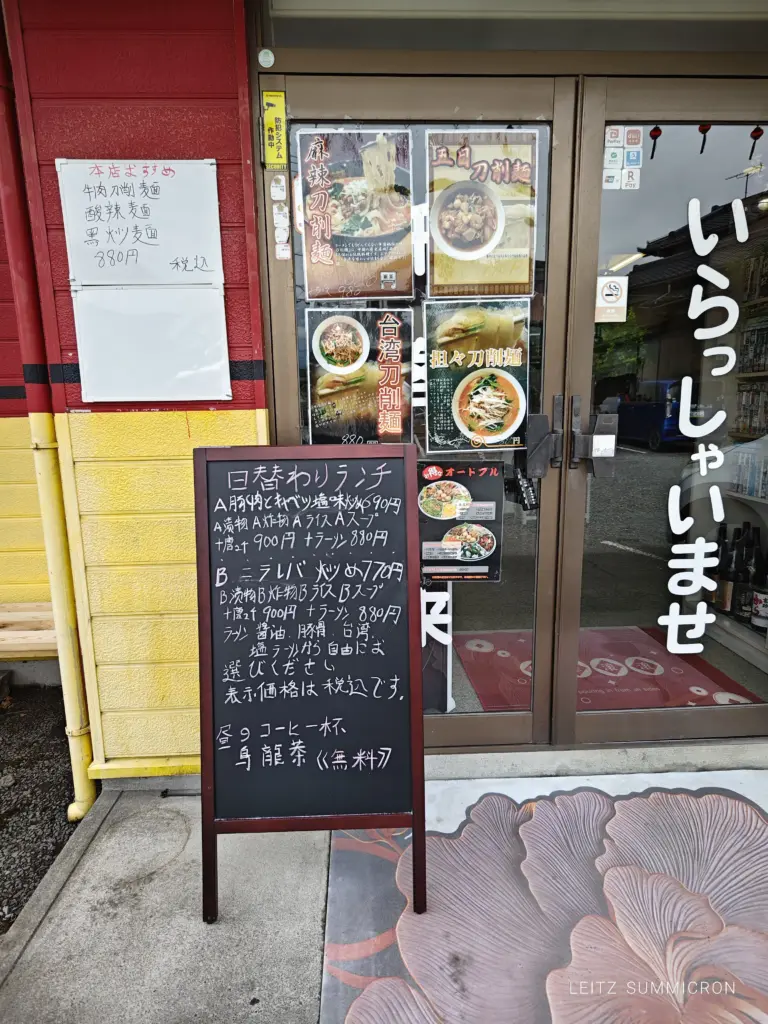 本店おすすめ
牛肉刀削麺
酸辣麺
黒炒麺
880円 税込
防犯システム
作動中
SECURITY
麻辣刀削麺
五目刀削麺
980
台湾刀削麺
880
担々刀削麺
オードブル
いらっしゃいませ
日替わりランチ
A豚肉とキャベツ塩味炒め690円
A漬物A炸物AライスAスープ
900円 +ラーメン880円
Bニラレバ炒め770円
B漬物B炸物BライスBスープ
900円 +ラーメン880円
ラーメン 醤油、豚骨、台湾、
塩ラーメンから自由にお
選びください
表示価格は税込です。
昼のコーヒー杯
烏龍茶《無料》
LEITZ SUMMICRON